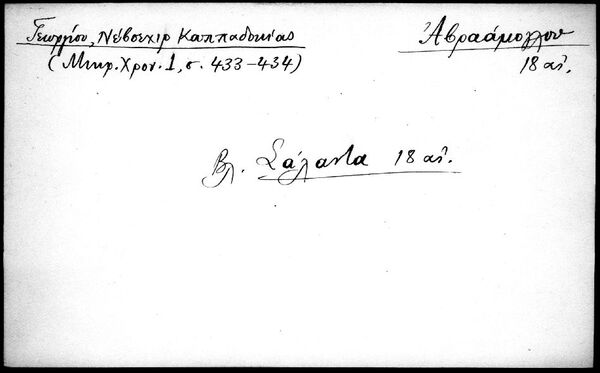 Γεωργίου, Νέβσεχιρ Καππαδοκίας
Ἀβραάμογλου
(Μικρ. Χρον. 1, σ. 433-434)
18 αἰ.
Βλ. Σάλαντα 18 αἰ.